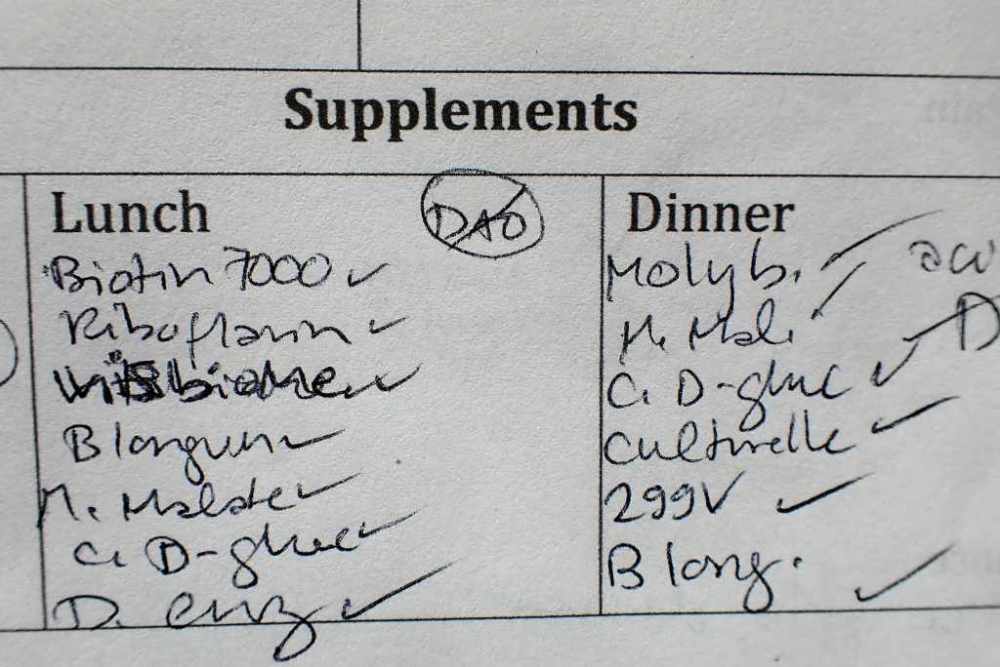 Supplements
Lunch
DAO
Biotin 7000
Riboflavin
Visbiome
B longum
M. Malate
C. D-gluc
D. enz
Dinner
Molyb.
M. Mal.
C. D-gluc
Culturelle
299V
B long.